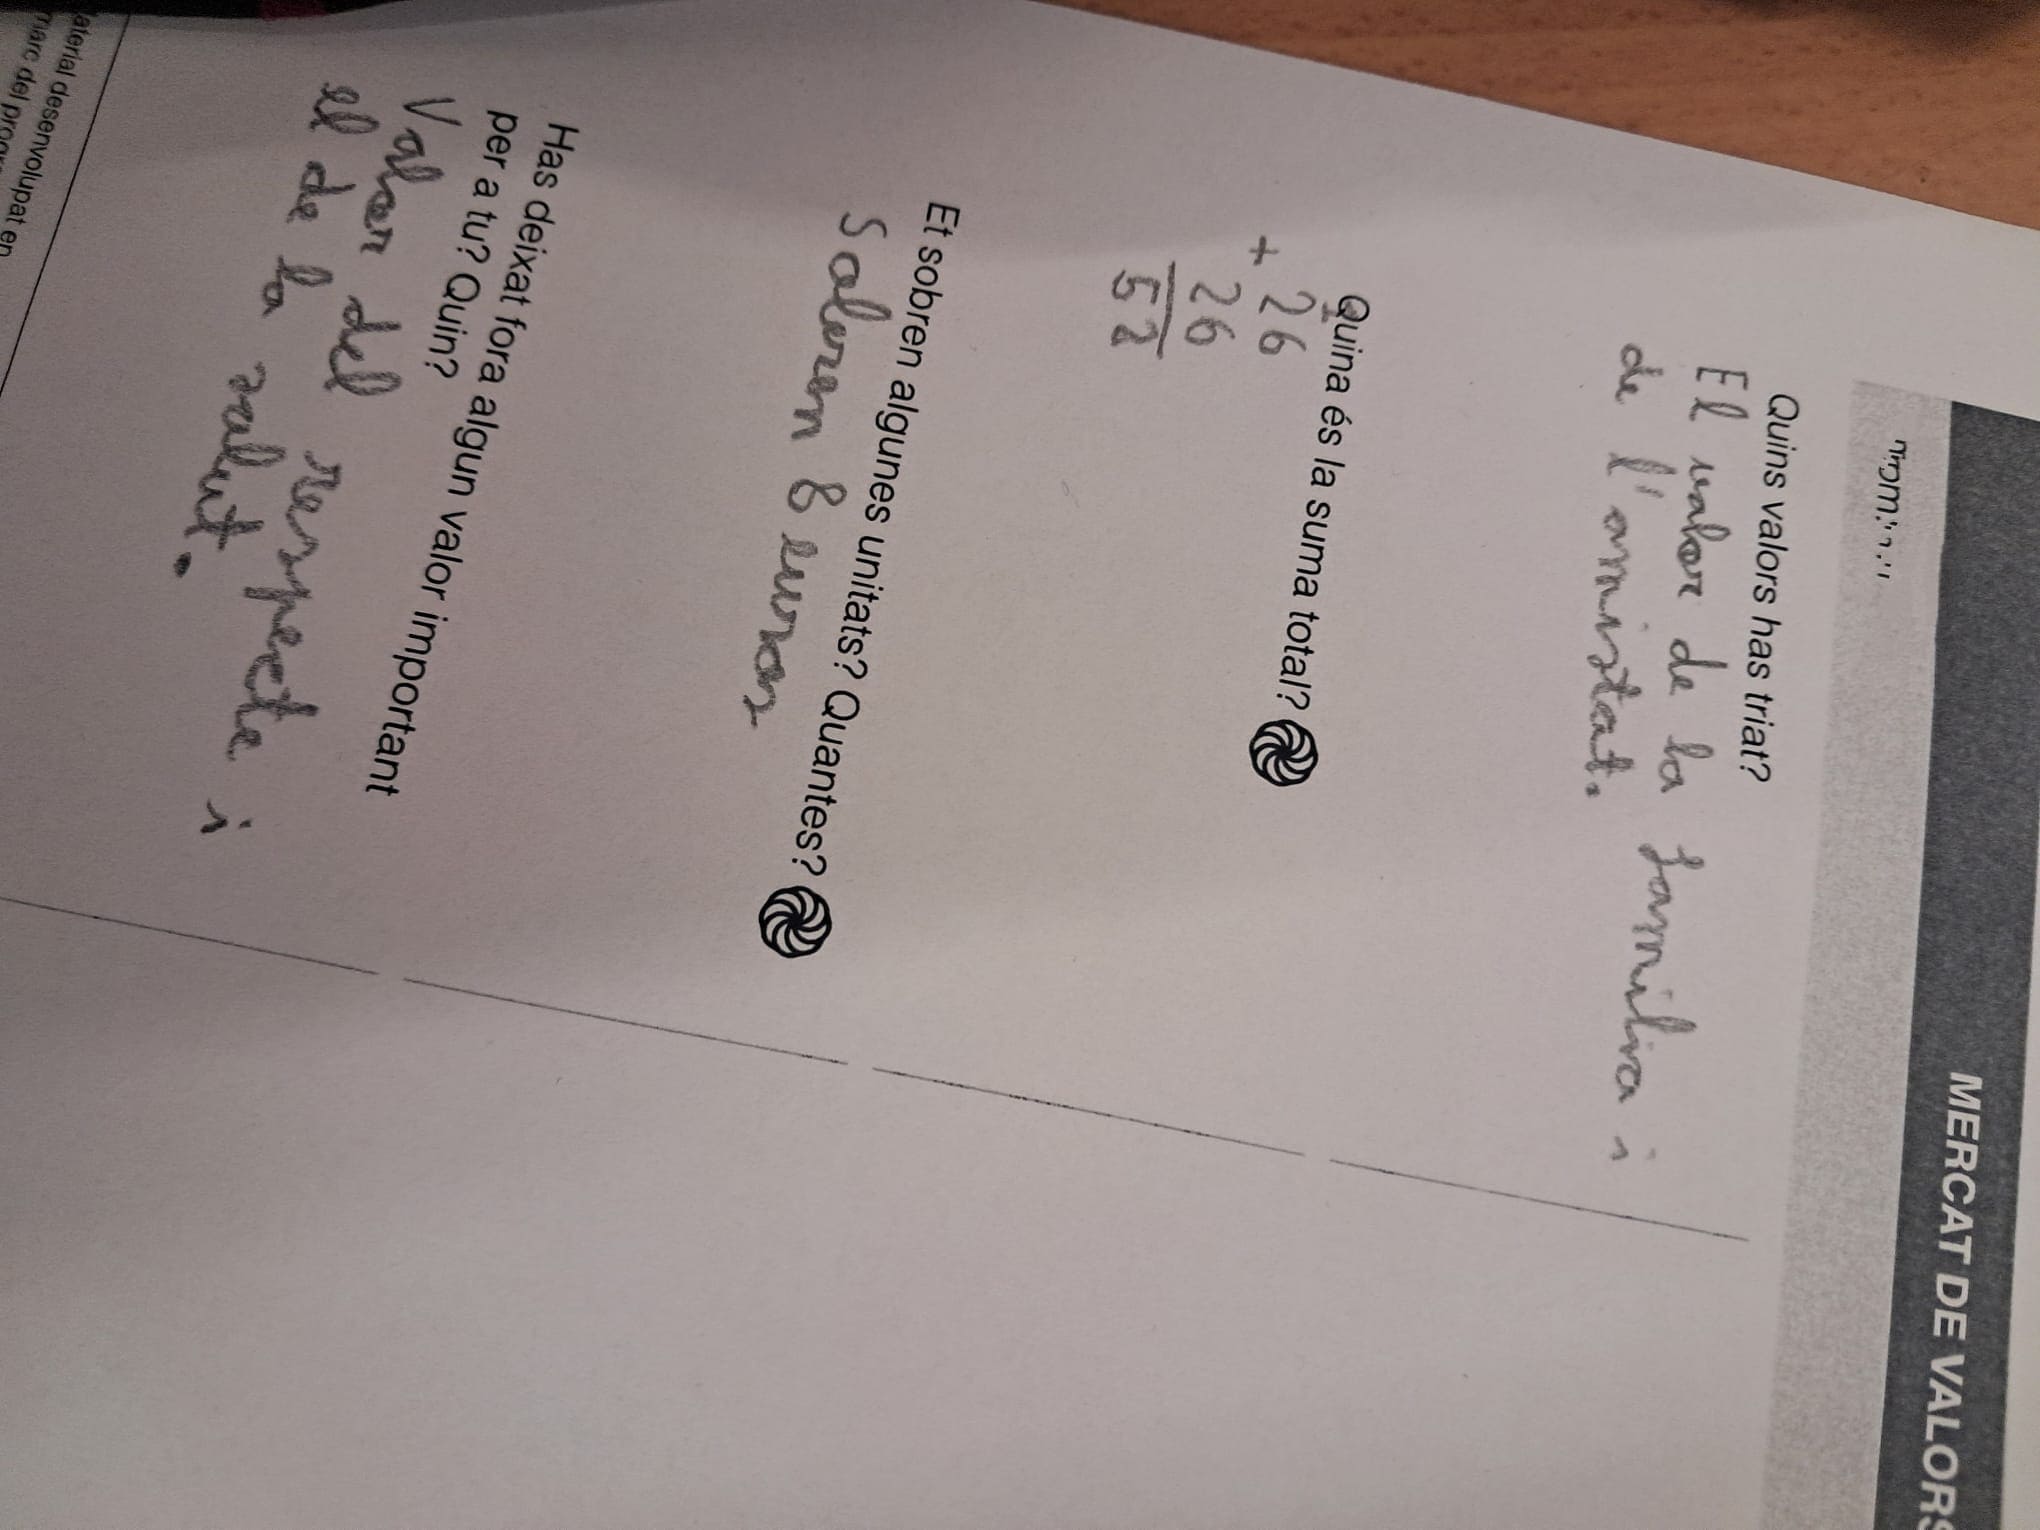 MERCAT DE VALORS
Quins valors has triat?
El valor de la familia i
de l'amistat.
Quina és la suma total?
+ 26
26
52
Et sobren algunes unitats? Quantes?
Soleren 8 euros
Has deixat fora algun valor important
per a tu? Quin?
Valor del respecte i
el de la salut.
aterial desenvolupat en
marc del